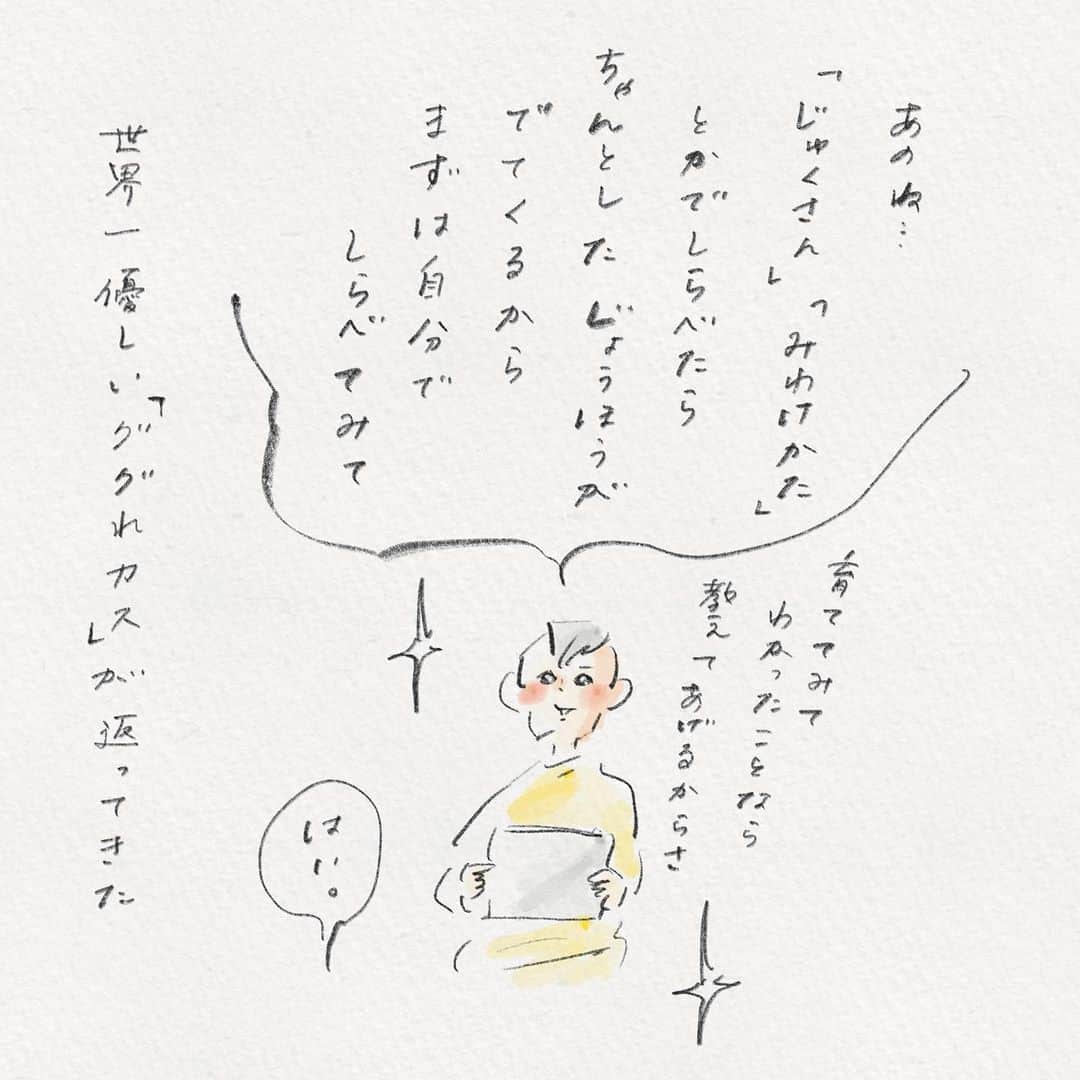 あのね…
「じゅくさん」「みわけかた」
とかでしらべたら
ちゃんとしたじょうほうが
でてくるから
まずは自分で
しらべてみて
育ててみて
わかったことなら
教えてあげるからさ
はい。
世界一優しい「ググれカス」が返ってきた